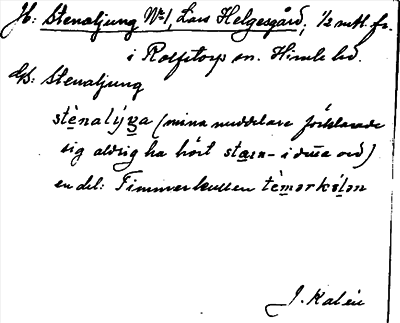 H: Stenaljung Nr 1, Lars Helgesgård, 1/2 mtl. fr.
i Rolfstorps sn. Himle hd.
Us: Stenaljung
stènalýŋa (mina meddelare förklarade
sig aldrig ha hört staen- i detta ord)
en del: Timmerkullen tèmərkɵlən
J. Kalén